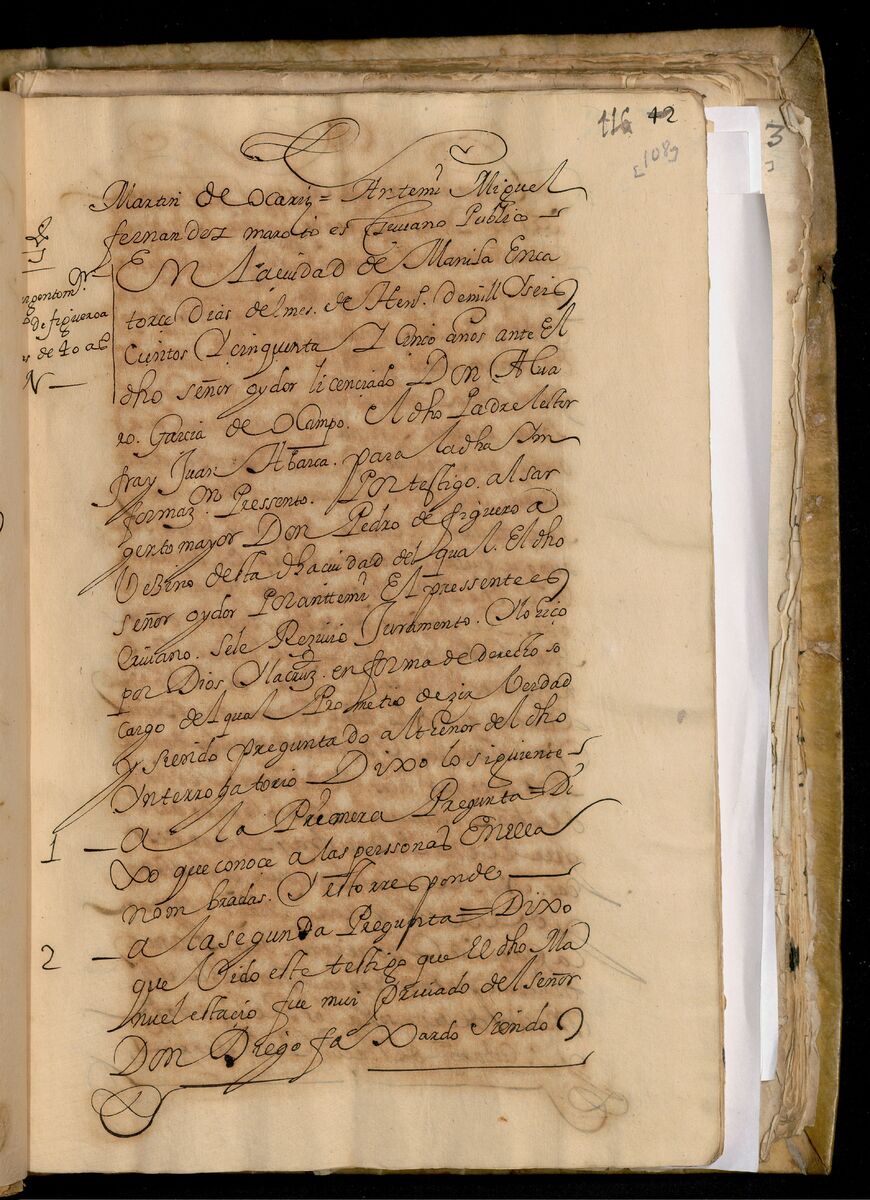 116 42
108
3
Martin de ocariz = Antemi Miguel
fernandez maroto escriuano Publico
En la ciudad de Manila En ca
torce Dias del mes. de Hen.º de mill Y seis
Cientos Y cinquenta Y Cinco años ante El
dho señor oydor licenciado Don Alua
ro. Garcia de oCampo. el dho Padre lector
fray Juan Abarca. para la dha Im
formaz.on Pressento. Por testigo. al sar
gento mayor Don Pedro de figueroa
Vezino desta dha ciudad del qual. El dho
señor oydor Por antemi El pressente es
Criuano. sele Reziuio Juramento. Y lo hiço
por Dios Y la cruz. en forma de derecho so
cargo del qual Prometio dezir Verdad
y siendo preguntado al thenor del dho
Ynterrogatorio Dixo lo siguiente
1 — a la Primera Pregunta = Di
xo que conoce a las perssonas En ella
nombradas. Y esto rresponde
2 — a la segunda Pregunta = Dixo
que Vido este testigo que El dho Ma
nuel estaçio fue mui Priuado del señor
Don Diego faxardo siendo
de figueroa
de 40 a